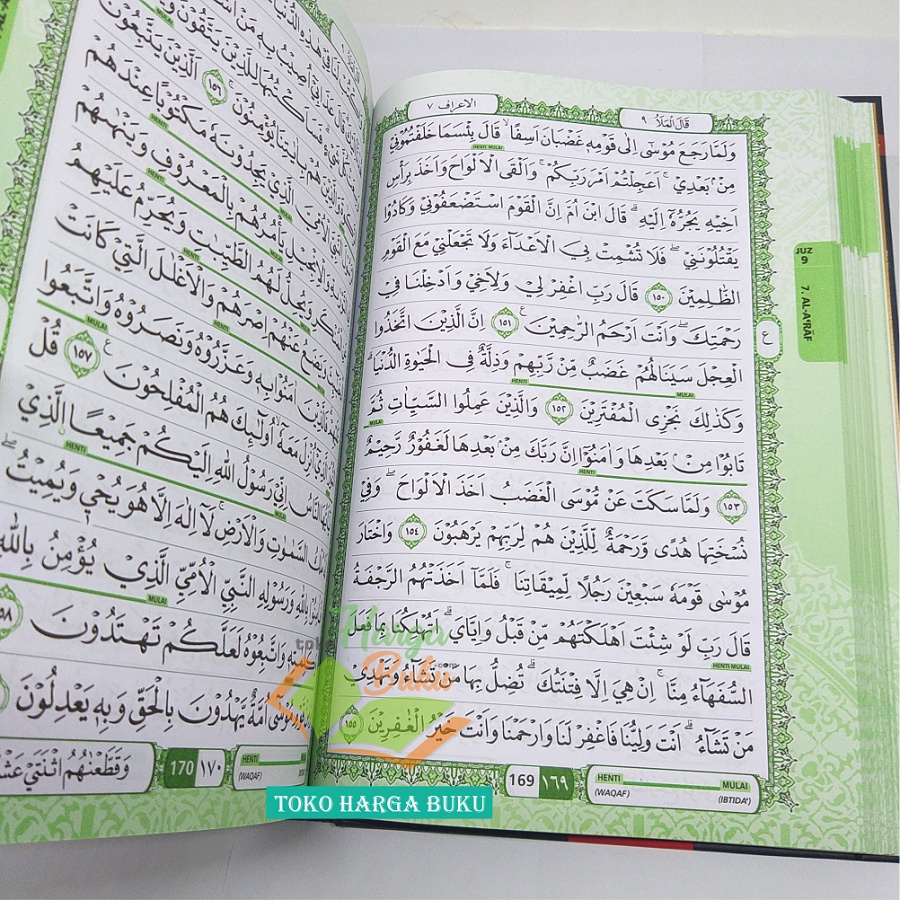 قَالَ الْمَلَأُ ٩
الاعراف ٧
وَلَمَّا رَجَعَ مُوْسٰٓى اِلٰى قَوْمِهٖ غَضْبَانَ اَسِفًاۙ قَالَ بِئْسَمَا خَلَفْتُمُوْنِيْ
HENTI MULAI
مِنْۢ بَعْدِيْۚ اَعَجِلْتُمْ اَمْرَ رَبِّكُمْۚ وَاَلْقَى الْاَلْوَاحَ وَاَخَذَ بِرَأْسِ
اَخِيْهِ يَجُرُّهٗٓ اِلَيْهِۗ قَالَ ابْنَ اُمَّ اِنَّ الْقَوْمَ اسْتَضْعَفُوْنِيْ وَكَادُوْا
يَقْتُلُوْنَنِيْۖ فَلَا تُشْمِتْ بِيَ الْاَعْدَاۤءَ وَلَا تَجْعَلْنِيْ مَعَ الْقَوْمِ
الظّٰلِمِيْنَ ١٥٠ قَالَ رَبِّ اغْفِرْ لِيْ وَلِاَخِيْ وَاَدْخِلْنَا فِيْ
رَحْمَتِكَۖ وَاَنْتَ اَرْحَمُ الرّٰحِمِيْنَ ١٥١ اِنَّ الَّذِيْنَ اتَّخَذُوا
الْعِجْلَ سَيَنَالُهُمْ غَضَبٌ مِّنْ رَّبِّهِمْ وَذِلَّةٌ فِى الْحَيٰوةِ الدُّنْيَاۗ
HENTI
MULAI
وَكَذٰلِكَ نَجْزِى الْمُفْتَرِيْنَ ١٥٢ وَالَّذِيْنَ عَمِلُوا السَّيِّاٰتِ ثُمَّ
MULAI
تَابُوْا مِنْۢ بَعْدِهَا وَاٰمَنُوْٓا اِنَّ رَبَّكَ مِنْۢ بَعْدِهَا لَغَفُوْرٌ رَّحِيْمٌ
HENTI
١٥٣ وَلَمَّا سَكَتَ عَنْ مُّوْسَى الْغَضَبُ اَخَذَ الْاَلْوَاحَۖ وَفِيْ
نُسْخَتِهَا هُدًى وَّرَحْمَةٌ لِّلَّذِيْنَ هُمْ لِرَبِّهِمْ يَرْهَبُوْنَ ١٥٤ وَاخْتَارَ
مُوْسٰى قَوْمَهٗ سَبْعِيْنَ رَجُلًا لِّمِيْقَاتِنَاۚ فَلَمَّآ اَخَذَتْهُمُ الرَّجْفَةُ
قَالَ رَبِّ لَوْ شِئْتَ اَهْلَكْتَهُمْ مِّنْ قَبْلُ وَاِيَّايَۗ اَتُهْلِكُنَا بِمَا فَعَلَ
HENTI MULAI
السُّفَهَاۤءُ مِنَّاۚ اِنْ هِيَ اِلَّا فِتْنَتُكَۗ تُضِلُّ بِهَا مَنْ تَشَاۤءُ وَتَهْدِيْ
مَنْ تَشَاۤءُۗ اَنْتَ وَلِيُّنَا فَاغْفِرْ لَنَا وَارْحَمْنَا وَاَنْتَ خَيْرُ الْغٰفِرِيْنَ ١٥٥
169 ١٦٩
HENTI
MULAI
(WAQAF)
(IBTIDA')
JUZ
9
7. AL-A'RĀF
ع
يُؤْمِنُوْنَ ١٥٦ اَلَّذِيْنَ يَتَّبِعُوْنَ
يَجِدُوْنَهٗ مَكْتُوْبًا عِنْدَهُمْ
يَأْمُرُهُمْ بِالْمَعْرُوْفِ وَيَنْهٰىهُمْ
وَيُحِلُّ لَهُمُ الطَّيِّبٰتِ وَيُحَرِّمُ عَلَيْهِمُ
وَيَضَعُ عَنْهُمْ اِصْرَهُمْ وَالْاَغْلٰلَ الَّتِيْ كَانَتْ
اٰمَنُوْا بِهٖ وَعَزَّرُوْهُ وَنَصَرُوْهُ وَاتَّبَعُوا
اُنْزِلَ مَعَهٗٓ اُولٰۤىِٕكَ هُمُ الْمُفْلِحُوْنَ ١٥٧ قُلْ
النَّاسُ اِنِّيْ رَسُوْلُ اللّٰهِ اِلَيْكُمْ جَمِيْعًا الَّذِيْ
السَّمٰوٰتِ وَالْاَرْضِۚ لَآ اِلٰهَ اِلَّا هُوَ يُحْيٖ وَيُمِيْتُۖ
بِاللّٰهِ وَرَسُوْلِهِ النَّبِيِّ الْاُمِّيِّ الَّذِيْ يُؤْمِنُ بِاللّٰهِ
وَاتَّبِعُوْهُ لَعَلَّكُمْ تَهْتَدُوْنَ
اُمَّةٌ يَّهْدُوْنَ بِالْحَقِّ وَبِهٖ يَعْدِلُوْنَ
وَقَطَّعْنٰهُمُ اثْنَتَيْ
170 ١٧٠
HENTI
(WAQAF)
toko
Harga
Buku
.com
TOKO HARGA BUKU